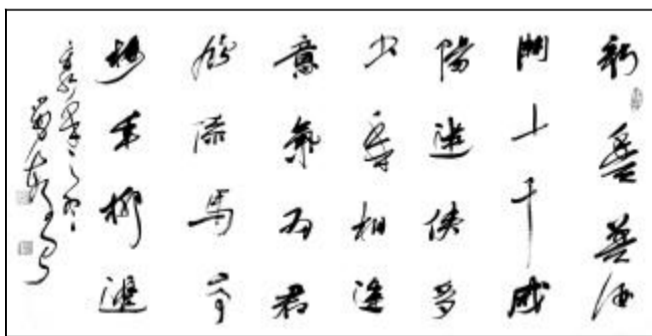 新豐美酒
鬥十千咸
陽遊俠多
少年相逢
意氣為君
飲馬高
樓垂柳邊